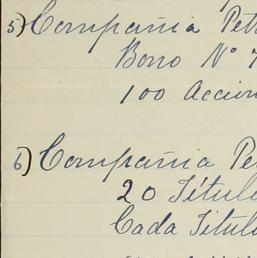 5) Compañia Pet
Bono Nº 7
100 Accion
6) Compañia Pe
20 Títul
Cada Títul